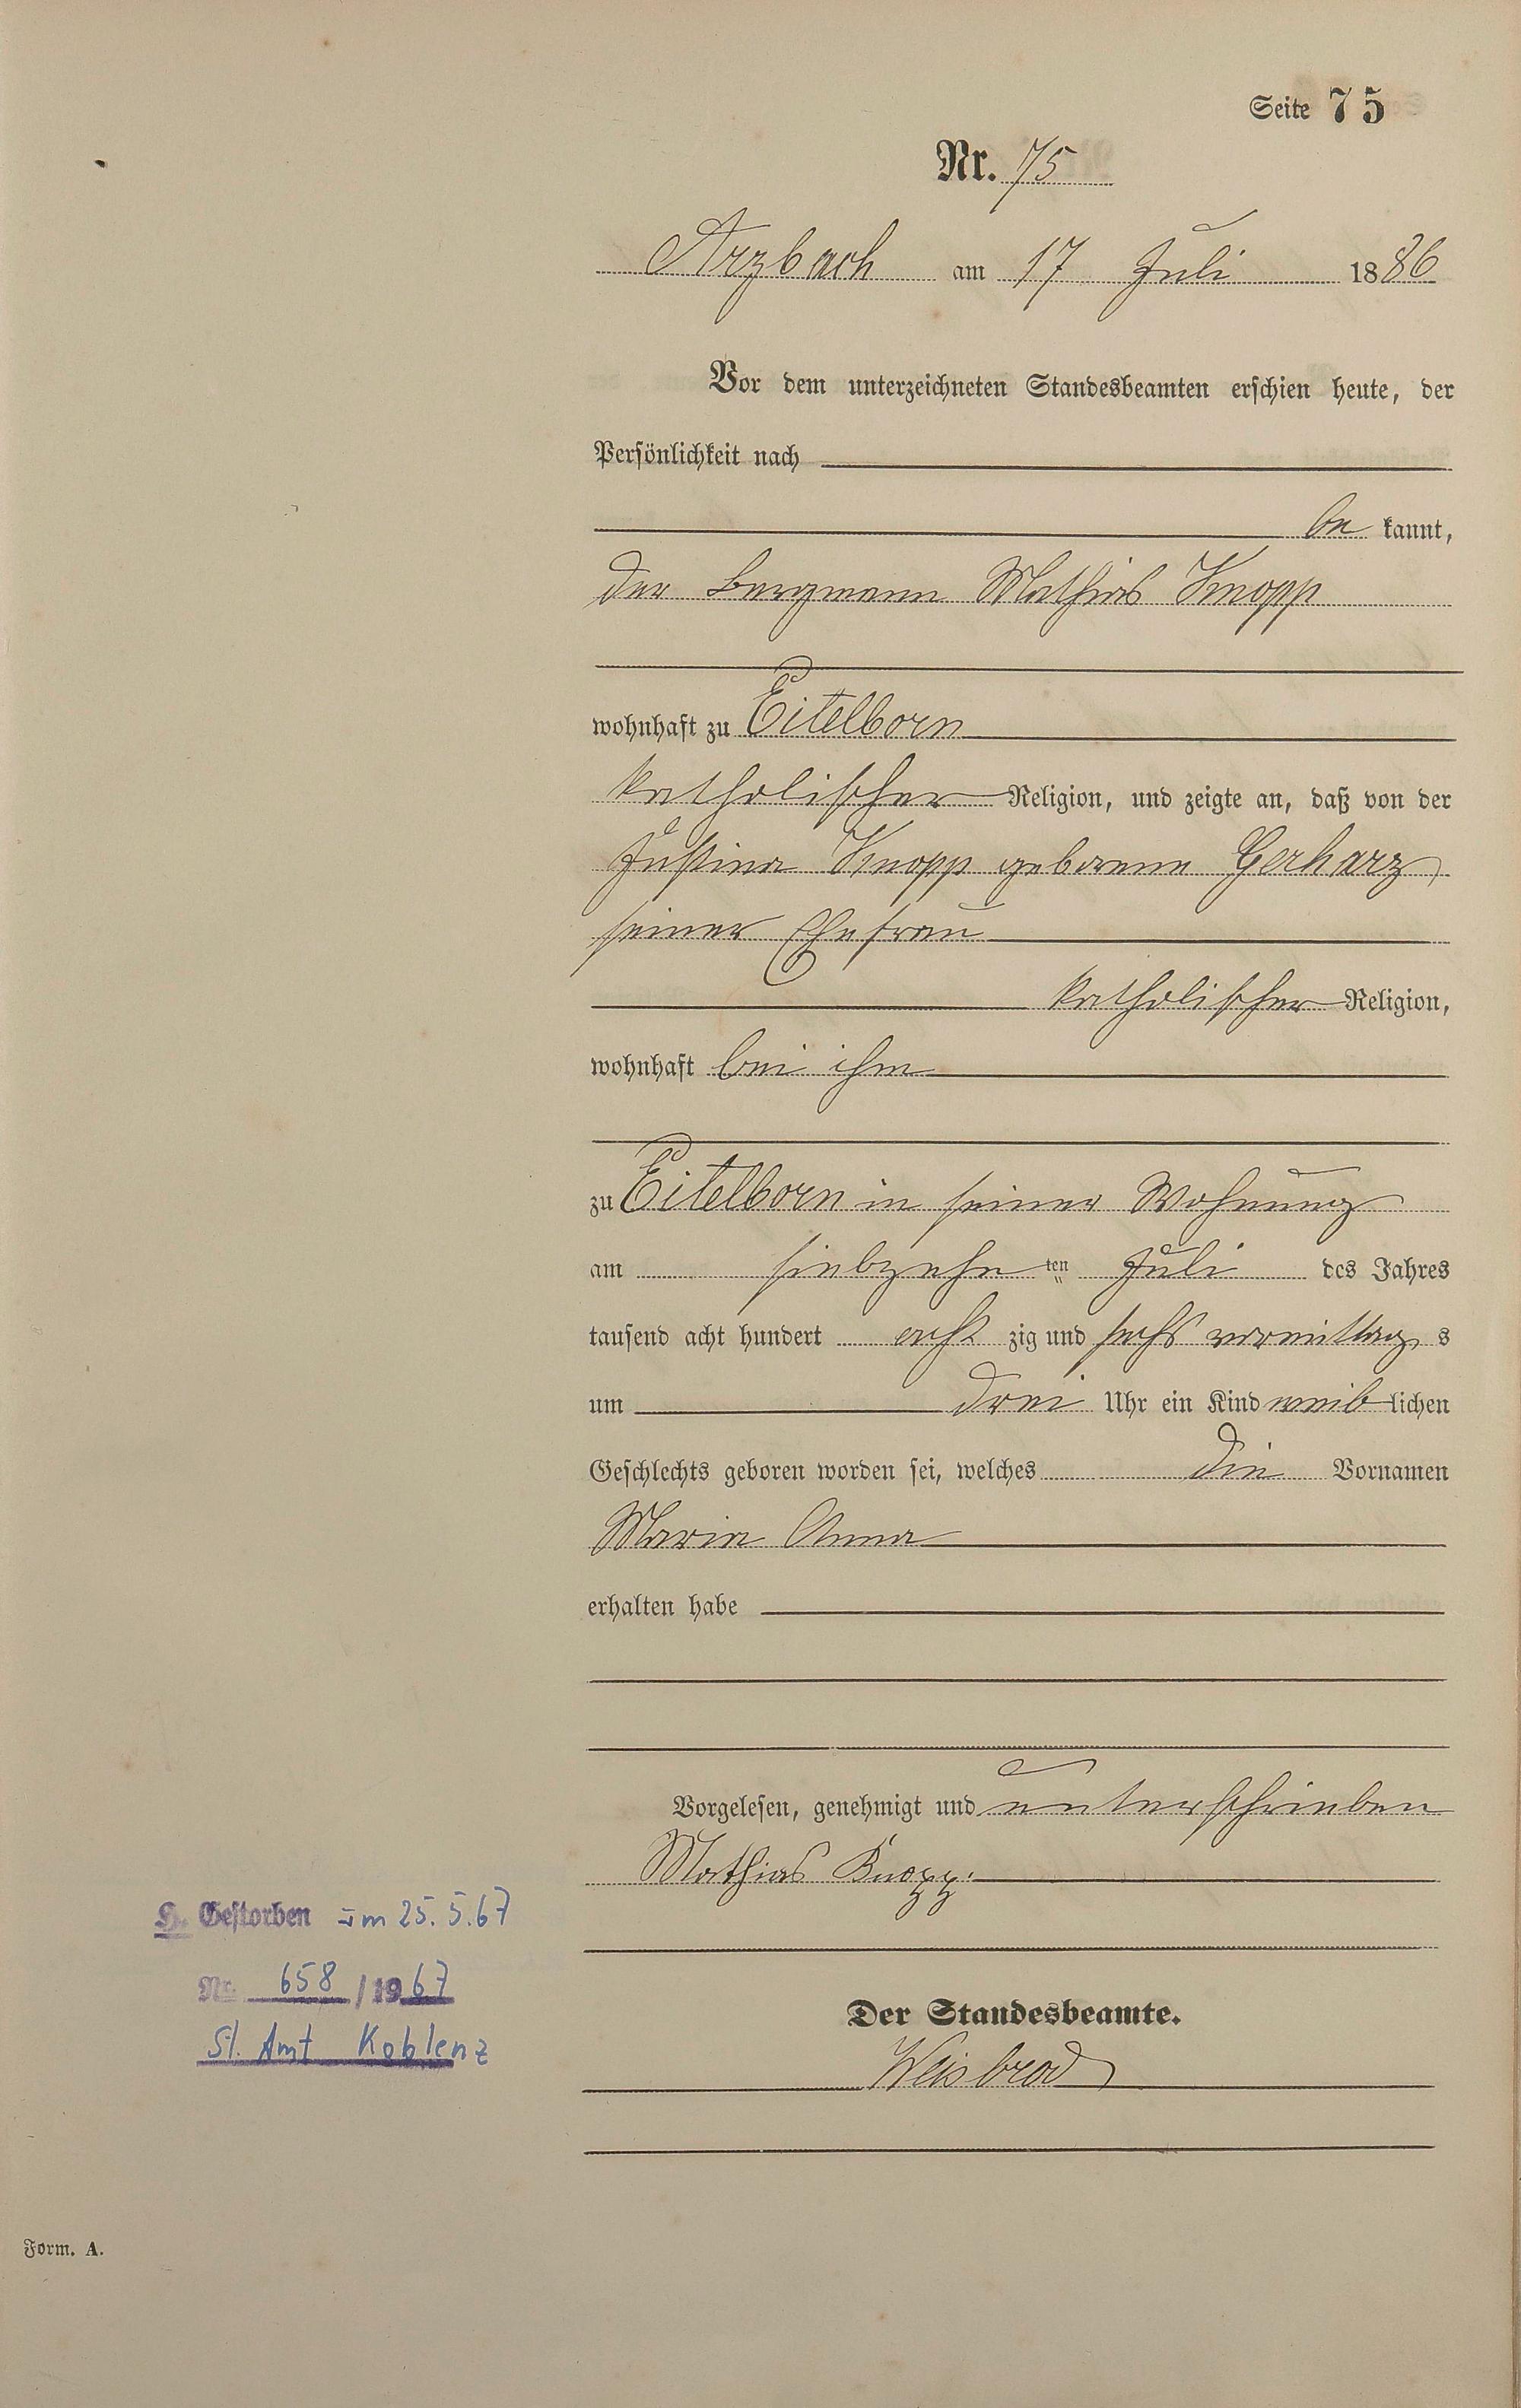 Seite 75
Nr. 75
Arzbach am 17 Juli 1886
Vor dem unterzeichneten Standesbeamten erschien heute, der
Persönlichkeit nach
be kannt,
der Bergmann Mathias Knopp
wohnhaft zu Eitelborn
katholischer Religion, und zeigte an, daß von der
Justina Knopp geborene Gerharz
seiner Ehefrau
katholischer Religion,
wohnhaft bei ihm
zu Eitelborn in seiner Wohnung
am siebzehn ten Juli des Jahres
tausend acht hundert acht zig und sechs vormittag s
um drei Uhr ein Kind weib lichen
Geschlechts geboren worden sei, welches die Vornamen
Maria Anna
erhalten habe
Vorgelesen, genehmigt und unterschrieben
Mathias Knopp.
Der Standesbeamte.
Weisbrod
Gestorben am 25.5.67
Nr. 658/1967
St. Amt Koblenz
Form. A.